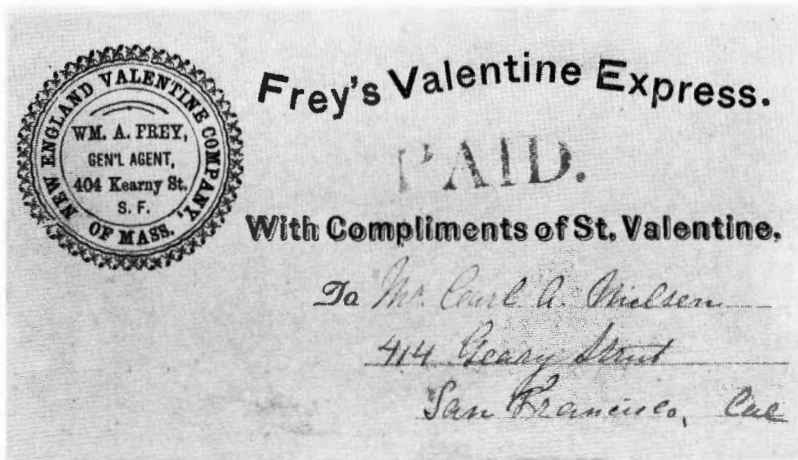 NEW ENGLAND VALENTINE COMPANY,
OF MASS.
WM. A. FREY,
GEN'L AGENT,
404 Kearny St.
S. F.
Frey's Valentine Express.
PAID.
With Compliments of St. Valentine.
To Mr. Carl A. Nielsen
414 Geary Street
San Francisco, Cal